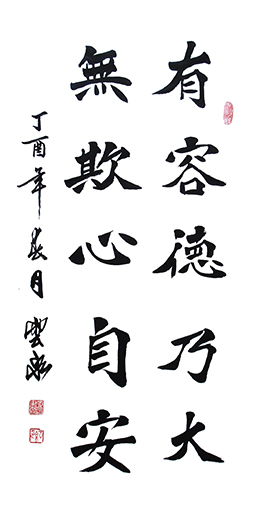 有容德乃大
無欺心自安
丁酉年長月雲松